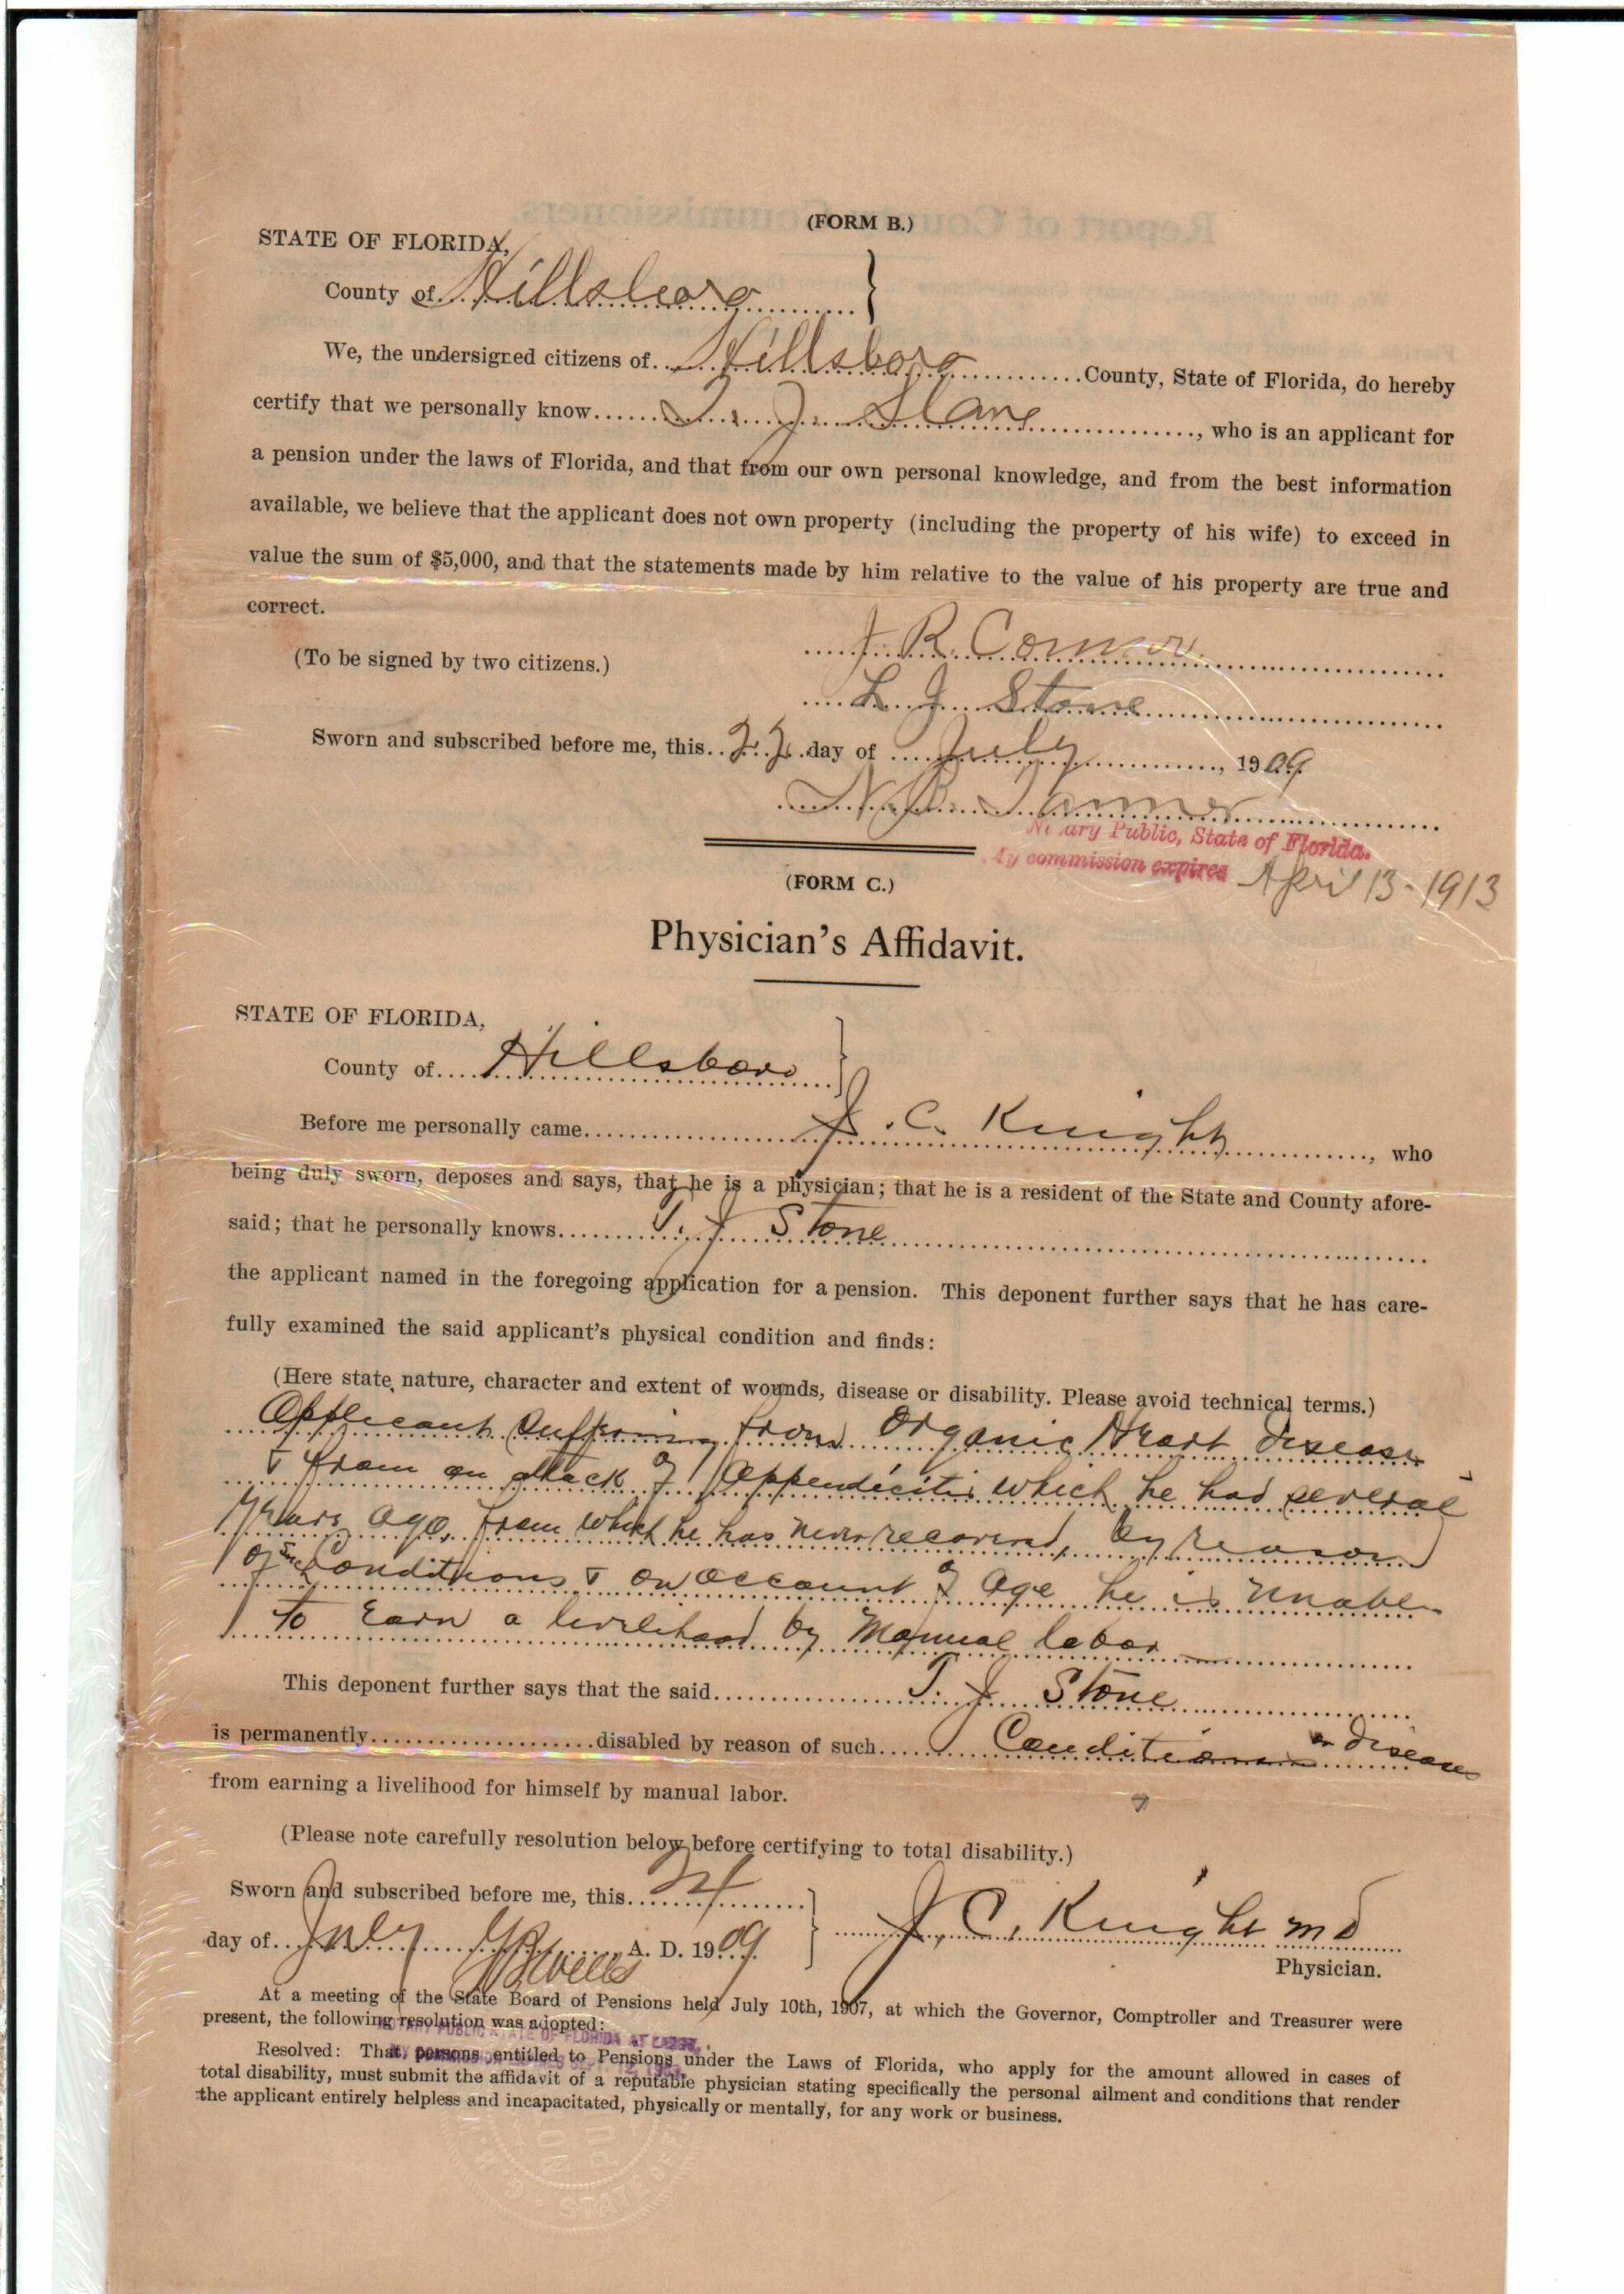 (FORM B.)
STATE OF FLORIDA,
County of Hillsboro }
We, the undersigned citizens of Hillsboro County, State of Florida, do hereby
certify that we personally know T. J. Stone, who is an applicant for
a pension under the laws of Florida, and that from our own personal knowledge, and from the best information
available, we believe that the applicant does not own property (including the property of his wife) to exceed in
value the sum of $5,000, and that the statements made by him relative to the value of his property are true and
correct.
J. R. Connor
(To be signed by two citizens.)
L. J. Stone
Sworn and subscribed before me, this 22 day of July, 1909
N. B. Tanner
Notary Public, State of Florida.
My commission expires April 13 - 1913
(FORM C.)
Physician's Affidavit.
STATE OF FLORIDA,
County of Hillsboro }
Before me personally came J. C. Knight, who
being duly sworn, deposes and says, that he is a physician; that he is a resident of the State and County afore-
said; that he personally knows T. J Stone
the applicant named in the foregoing application for a pension. This deponent further says that he has care-
fully examined the said applicant's physical condition and finds:
(Here state nature, character and extent of wounds, disease or disability. Please avoid technical terms.)
Applicant suffering from Organic Heart disease
& from an attack of Appendicitis which he had several
years ago, from which he has never recovered, by reason
of such Conditions & on account of age he is unable
to Earn a livelihood by Manual labor
This deponent further says that the said T. J. Stone
is permanently disabled by reason of such Conditions or disease
from earning a livelihood for himself by manual labor.
(Please note carefully resolution below before certifying to total disability.)
Sworn and subscribed before me, this 24
day of July A. D. 1909 } J. C. Knight M D
Wells
Physician.
At a meeting of the State Board of Pensions held July 10th, 1907, at which the Governor, Comptroller and Treasurer were
present, the following resolution was adopted:
NOTARY PUBLIC STATE OF FLORIDA AT LARGE.
Resolved: That persons entitled to Pensions under the Laws of Florida, who apply for the amount allowed in cases of
total disability, must submit the affidavit of a reputable physician stating specifically the personal ailment and conditions that render
the applicant entirely helpless and incapacitated, physically or mentally, for any work or business.